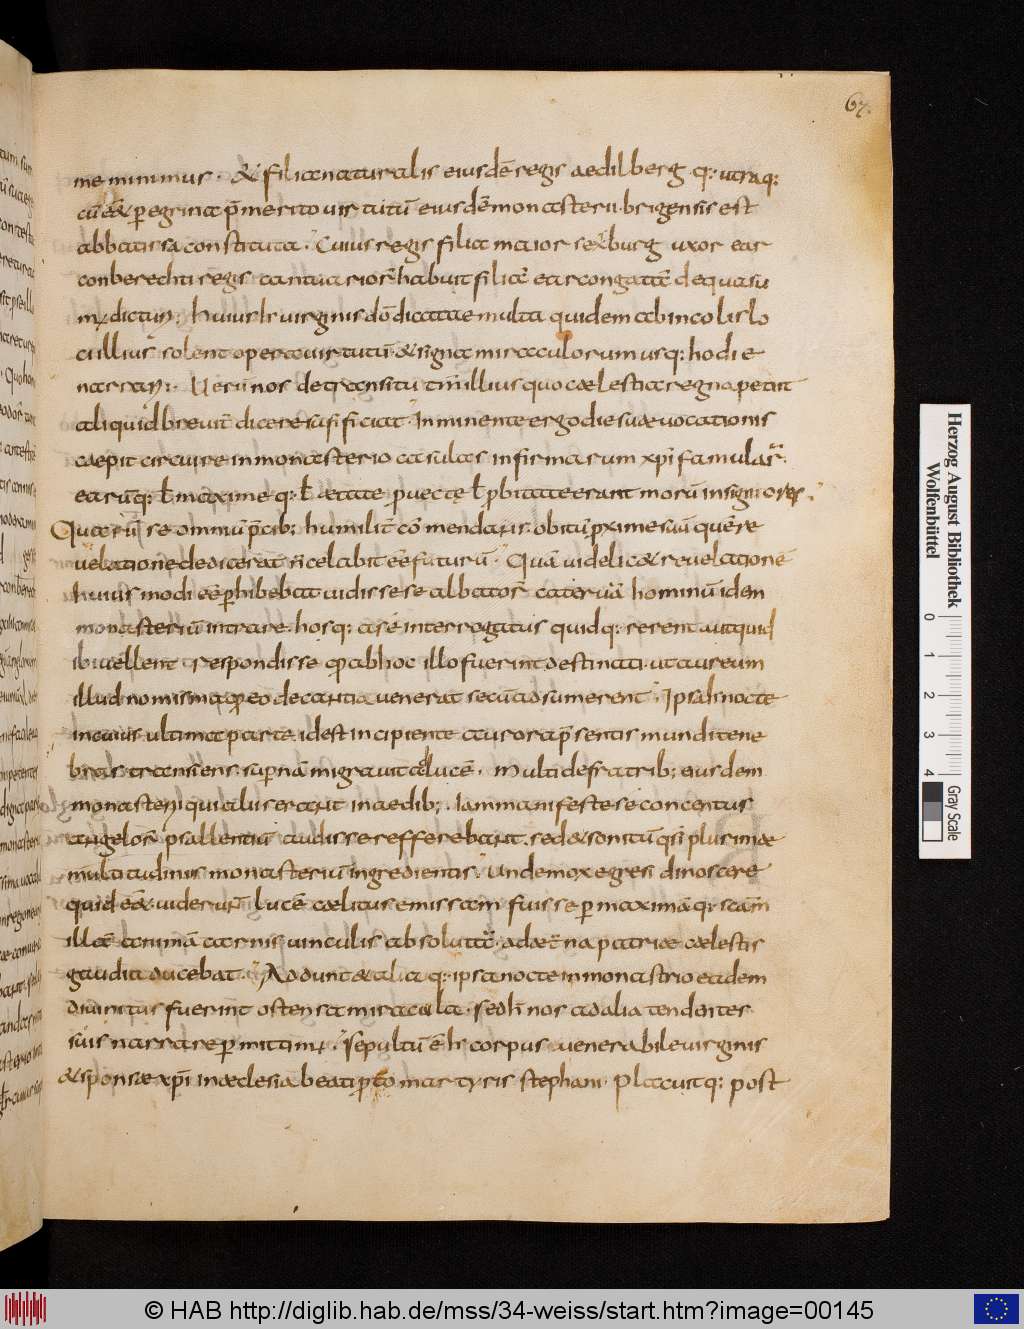 67.
me minimus . & filia naturalis eiusdē regis aedilberg q: utraq:
cū eēt peregrina p̄ merito uirtutū eiusdē monasterii brigensis est
abbatissa constituta . Cuius regis filia maior sexburg uxor ear
conberechti regis cantuariorū habuit filiā earcongatā de qua su
mus dicturi ; huius uirginis dō dicatae multa quidem ab incolis lo
ci illius solent opera uirtutū & signa miraculorum usq: hodie
narrari ; Uerū nos de transitu tm̄ illius quo caelestia regna petiit
aliquid breuit̄ dicere sufficiat . Inminente ergo die suae uocationis
caepit circuire in monasterio casulas infirmarum xp̄i famularū .
earūq: ł maxime q: ł aetate prouectę ł probitate erant morū insigniores .
Quarū se omniū p̄cib; humilit̄ cōmendans . obitū proxime suū quē re
uelatione dedicerat n̄ celabit eē futurū . Quā uidelic& reuelationē
huius modi eē perhibebat uidisse se albatorū cateruā hominū idem
monasteriū intrare . hosq: a se interrogatus quid q:rerent aut quid
ibi uellent . respondisse qđ ab hoc illo fuerint destinati . ut aureum
illud nomisma qđ eo de cantia uenerat secū adsumerent . Ipsa h̄ nocte
in cuius ultima parte id est incipiente aurora p̄sentis mundi tene
bras transiens . supernā migrauit ad lucē . Multi de fratrib; eiusdem
monasterii qui aliis erant in aedib; . Iam manifeste se concentus
angelorū psallentiū audisse refferebant . sed & sonitū q̄si plurimae
multitudinis monasteriū ingredientis . Unde mox egressi dinoscere
quid eēt uiderunt lucē caelitus emissam fuisse per maximā q: scām
illā animā carnis uinculis absolutā . ad aeternā patriae caelestis
gaudia ducebat . Addunt & alia q: ipsa nocte in monastrio eadem
diuinitus fuerint ostensa miracula . sed h̄ nos ad alia tendentes
suis narrare permittim; . Sepultū ē h̄ corpus uenerabile uirginis
& sponsae xp̄i in aeclesia beati proto martyris stephani . Placuitq: post
Herzog August Bibliothek
Wolfenbüttel
0 1 2 3 4
Gray Scale
© HAB http://diglib.hab.de/mss/34-weiss/start.htm?image=00145